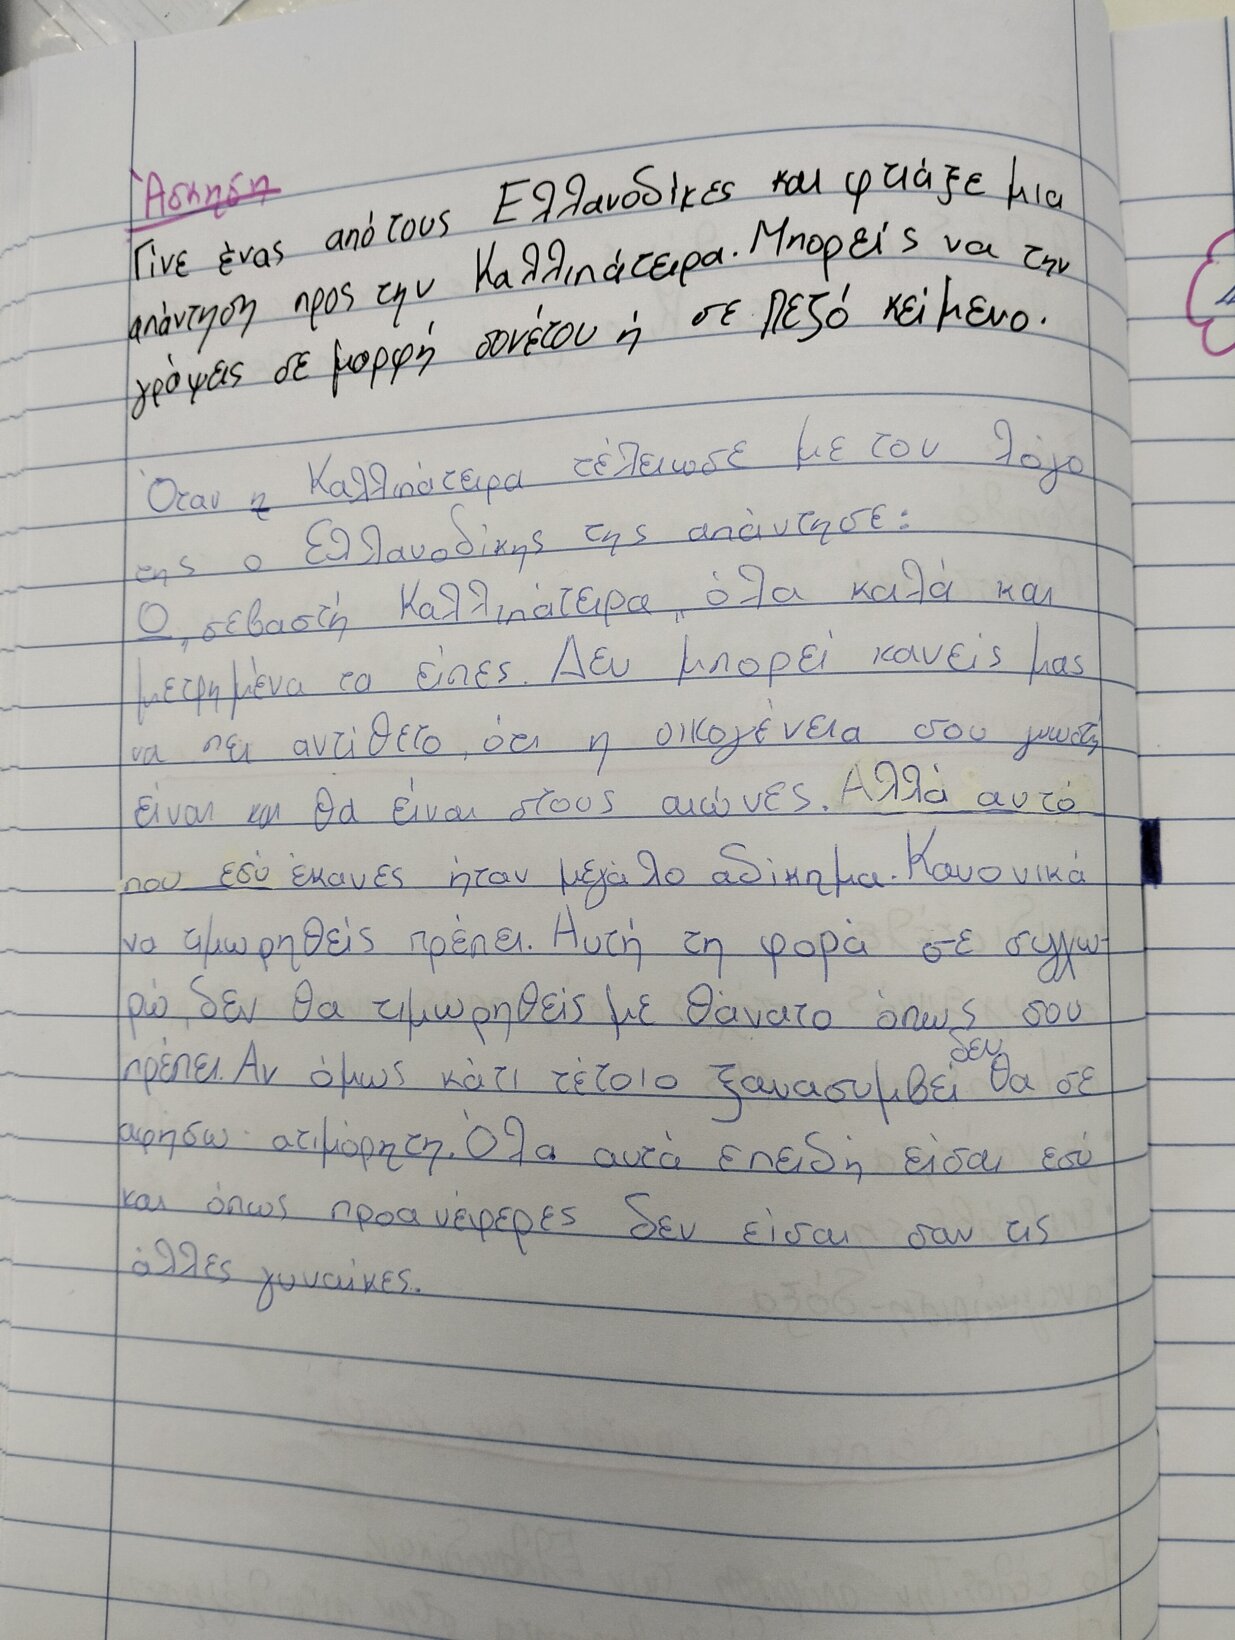 Άσκηση
Γίνε ένας από τους Ελλανοδίκες και φτιάξε μια
απάντηση προς την Καλλιπάτειρα. Μπορείς να την
γράψεις σε μορφή σονέτου ή σε πεζό κείμενο.
Όταν η Καλλιπάτειρα τέλειωσε με τον λόγο
της ο Ελλανοδίκης της απάντησε:
Ο, σεβαστή Καλλιπάτειρα, όλα καλά και
μετρημένα τα είπες. Δεν μπορεί κανείς μας
να πει αντίθετο, ότι η οικογένεια σου γνωστή
είναι και θα είναι στους αιώνες. Αλλά αυτό
που εσύ έκανες ήταν μεγάλο αδίκημα. Κανονικά
να τιμωρηθείς πρέπει. Αυτή τη φορά σε συγχω-
ρώ, δεν θα τιμωρηθείς με θάνατο όπως σου
πρέπει. Αν όμως κάτι τέτοιο ξανασυμβεί δεν θα σε
αφήσω ατιμόρητη. Όλα αυτά επειδή είσαι εσύ
και όπως προανέφερες δεν είσαι σαν τις
άλλες γυναίκες.